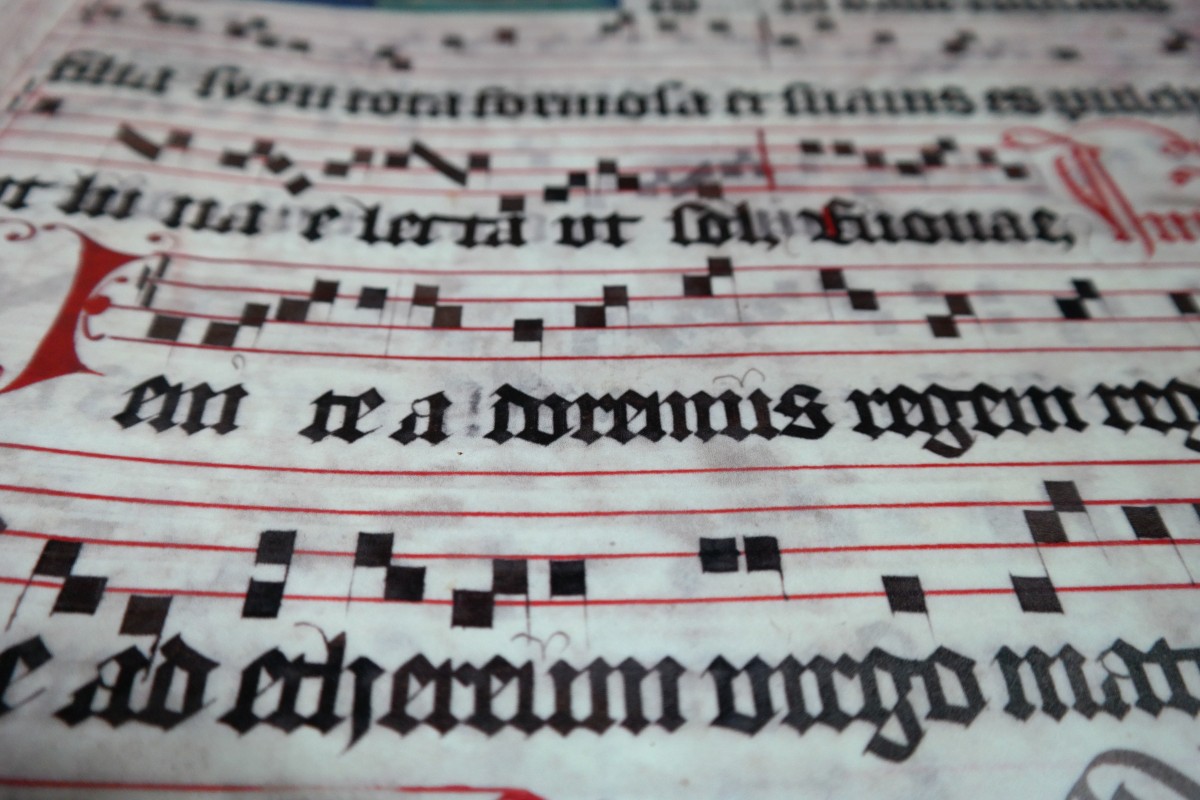 filia syon tota formosa et suauis es
et lu na e lecta ut sol, Euouae,
eni te a doremus regem reg
e ad ethereum uirgo mat